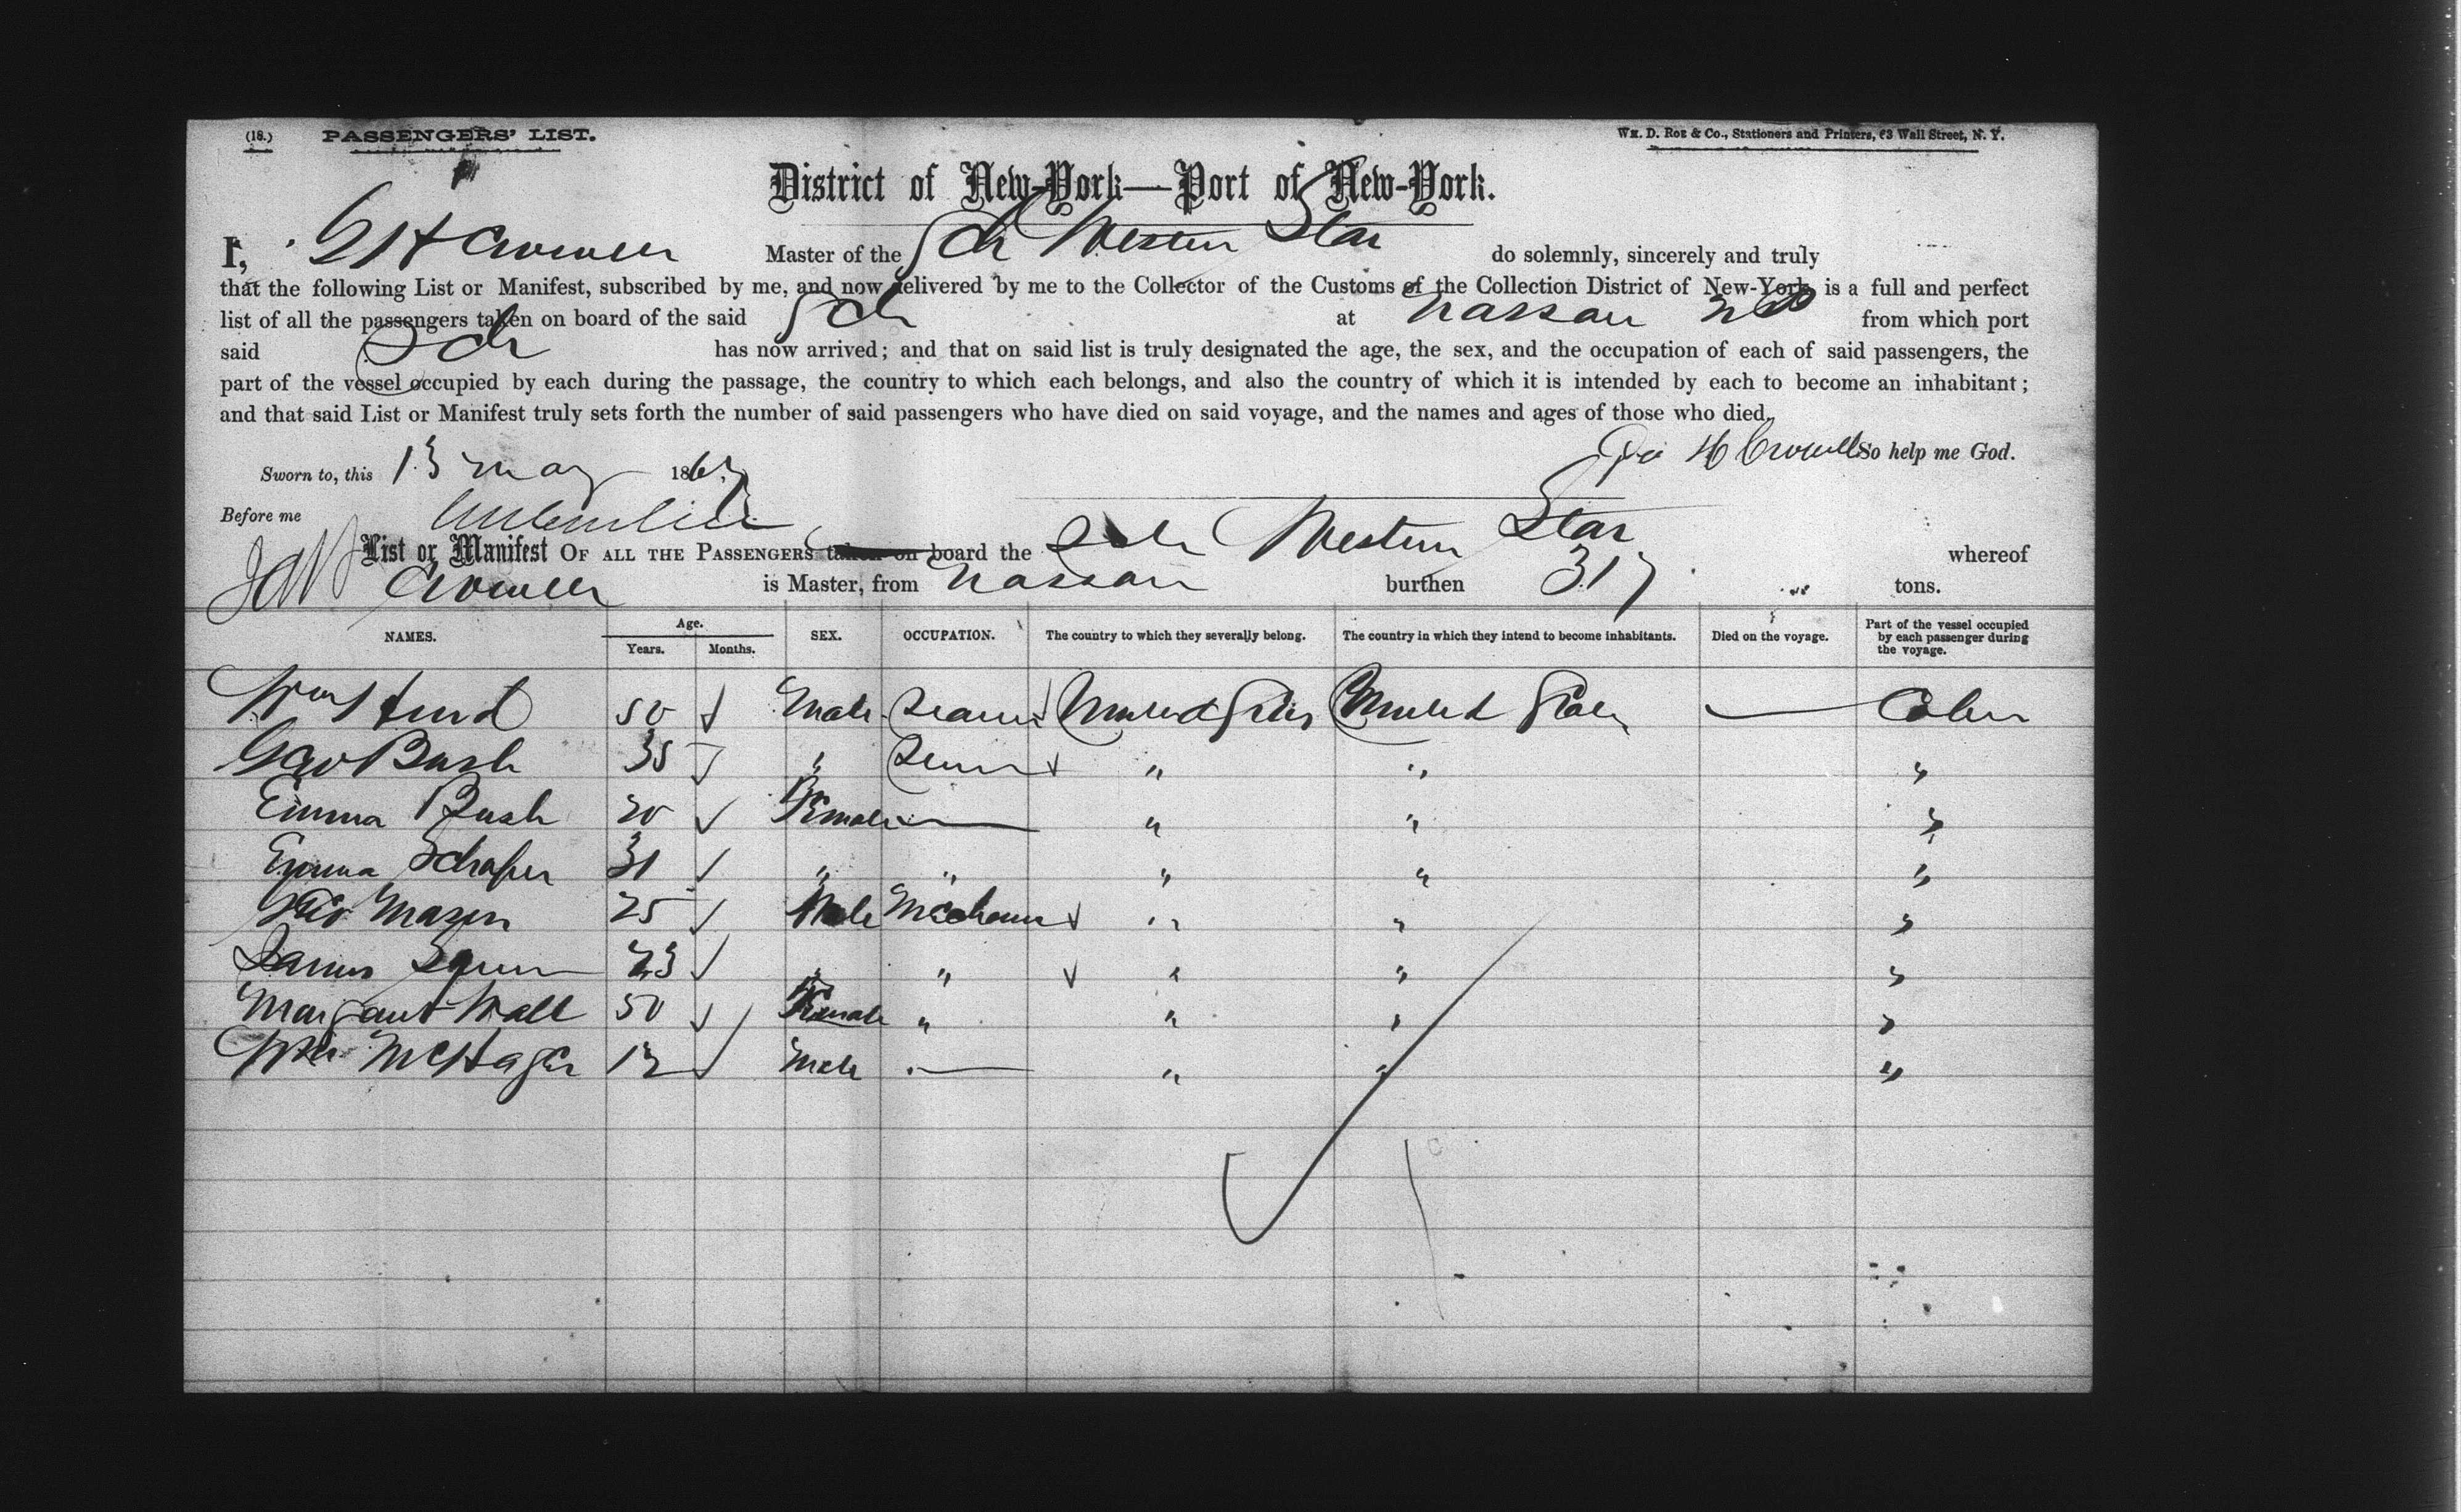 (18.) PASSENGERS' LIST. WM. D. ROE & CO., Stationers and Printers, 63 Wall Street, N. Y.
District of New-York—Port of New-York.
I, Crowell Master of the Sch Western Star do solemnly, sincerely and truly
that the following List or Manifest, subscribed by me, and now delivered by me to the Collector of the Customs of the Collection District of New-York, is a full and perfect
list of all the passengers taken on board of the said Sch at Nassau NP from which port
said Sch has now arrived; and that on said list is truly designated the age, the sex, and the occupation of each of said passengers, the
part of the vessel occupied by each during the passage, the country to which each belongs, and also the country of which it is intended by each to become an inhabitant;
and that said List or Manifest truly sets forth the number of said passengers who have died on said voyage, and the names and ages of those who died.
H Crowell So help me God.
Sworn to, this 13 May 186
Before me
List or Manifest OF ALL THE PASSENGERS taken on board the Sch Western Star whereof
Crowell is Master, from Nassau burthen 317 tons.
NAMES. Age. Years. Months. SEX. OCCUPATION. The country to which they severally belong. The country in which they intend to become inhabitants. Died on the voyage. Part of the vessel occupied by each passenger during the voyage.
Wm Hurd 50 Male United States United States — Cabin
Geo Bush 35 " " " "
Emma Bush 20 Female — " " "
Emma Schafer 31 " " " " "
Geo Mason 25 Male Mechanic " " "
James 23 " " " " "
Margaret Wall 50 Female " " " "
Wm McHager 12 Male — " " "